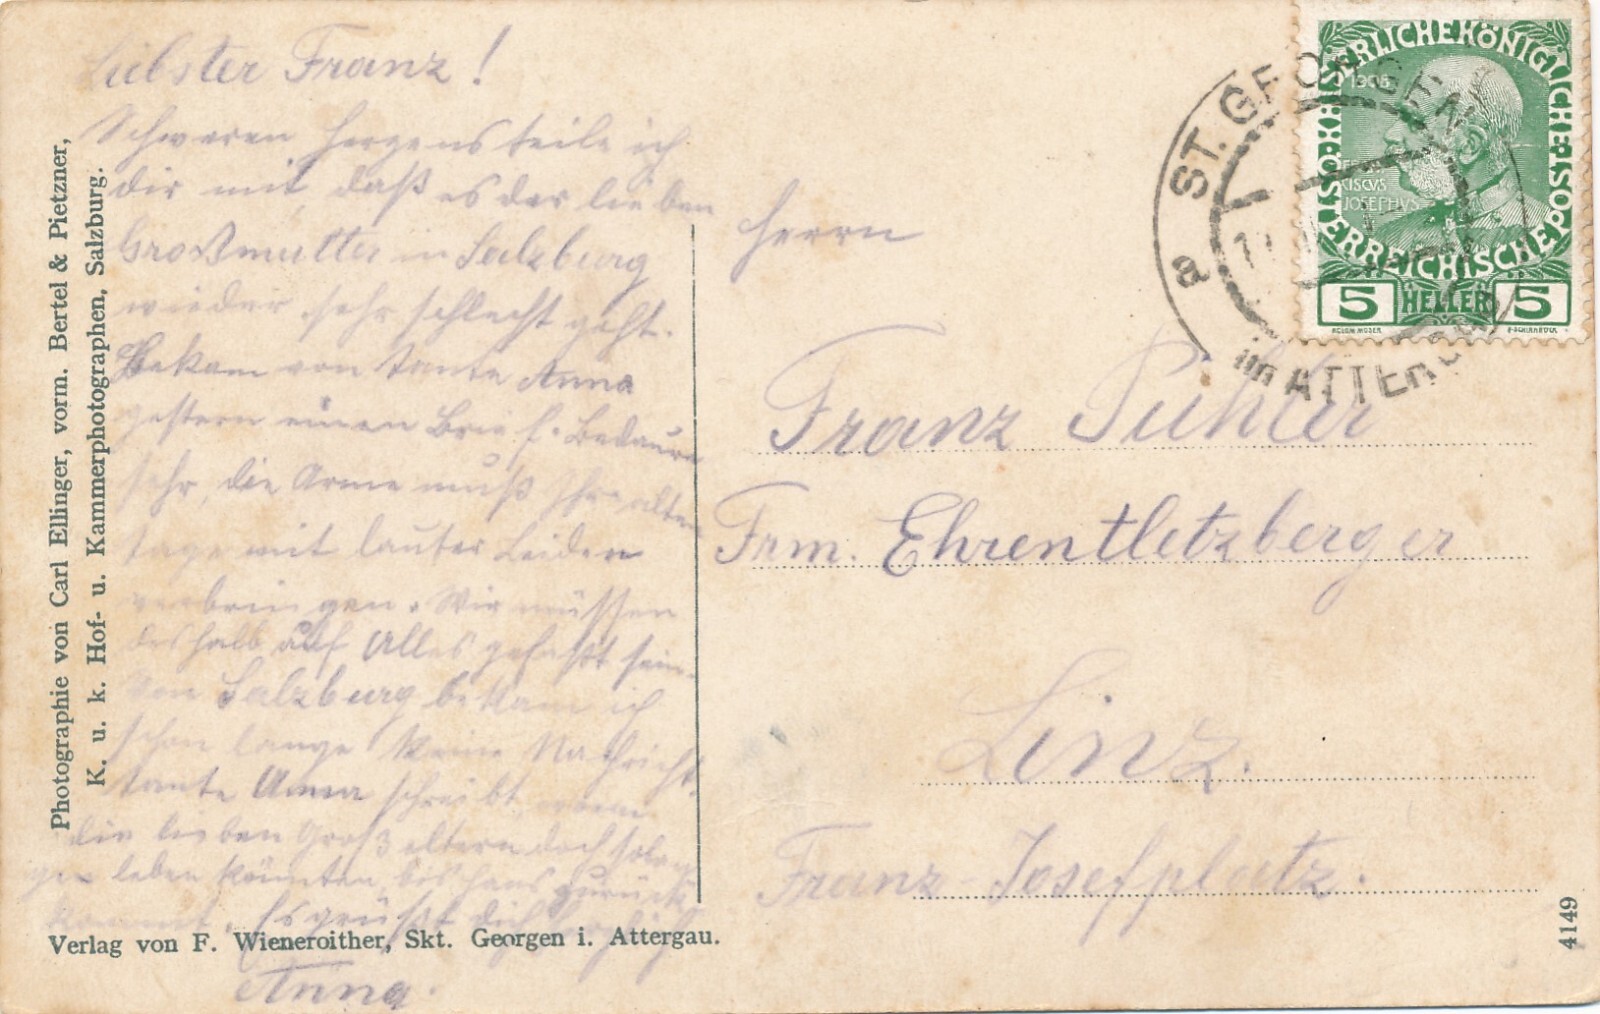 Liebster Franz!
Schweren Herzens teile ich
dir mit, daß es der lieben
Großmutter in Salzburg
wieder sehr schlecht geht.
Bekam von Tante Anna
gestern einen Brief. Bedaure
sehr, die Arme muß Ihre alten
tage mit lauter Leiden
verbringen. Wir müssen
deshalb auf Alles gefaßt sein.
Von Salzburg bekam ich
schon lange keine Nachricht.
tante Anna schreibt, wenn
die lieben Großeltern doch solan
gen leben könnten, bis Hans zurück
kommt. Es grüßt dich herzlich
Anna.
Photographie von Carl Ellinger, vorm. Bertel & Pietzner,
K. u. k. Hof- u. Kammerphotographen, Salzburg.
Verlag von F. Wieneroither, Skt. Georgen i. Attergau.
Herrn
Franz Pühler
Frm. Ehrentletzberger
Linz.
Franz-Josefplatz.
4149
KAISERLICHE KÖNIGLICHE ÖSTERREICHISCHE POST
1908
FRAN
CISCVS
JOSEPHVS
5 HELLER 5
KOLOM MOSER
F. SCHIRNBÖCK
ST. GEORGEN
im ATTERGAU
a